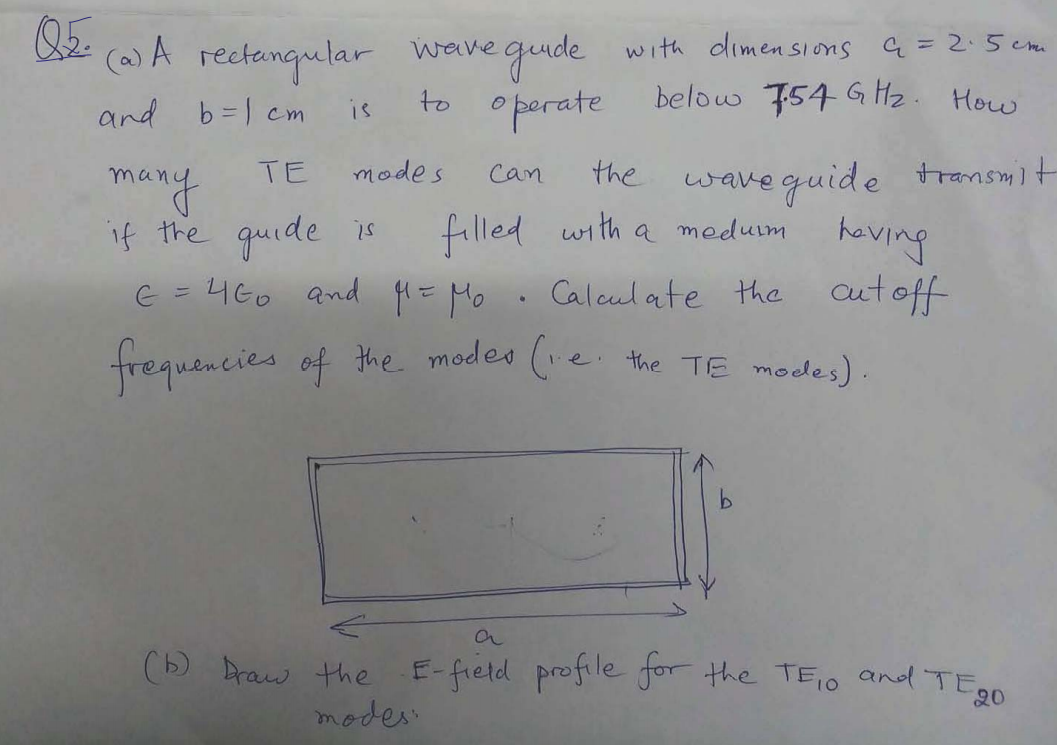 Q5. (a) A rectangular waveguide with dimensions a = 2.5 cm
and b = 1 cm is to operate below 7.54 GHz. How
many TE modes can the waveguide transmit
if the guide is filled with a meduim having
ϵ = 4ϵ₀ and μ = μ₀. Calculate the cutoff
frequencies of the modes (i.e. the TE modes).
b
a
(b) Draw the E-field profile for the TE₁₀ and TE₂₀
modes.